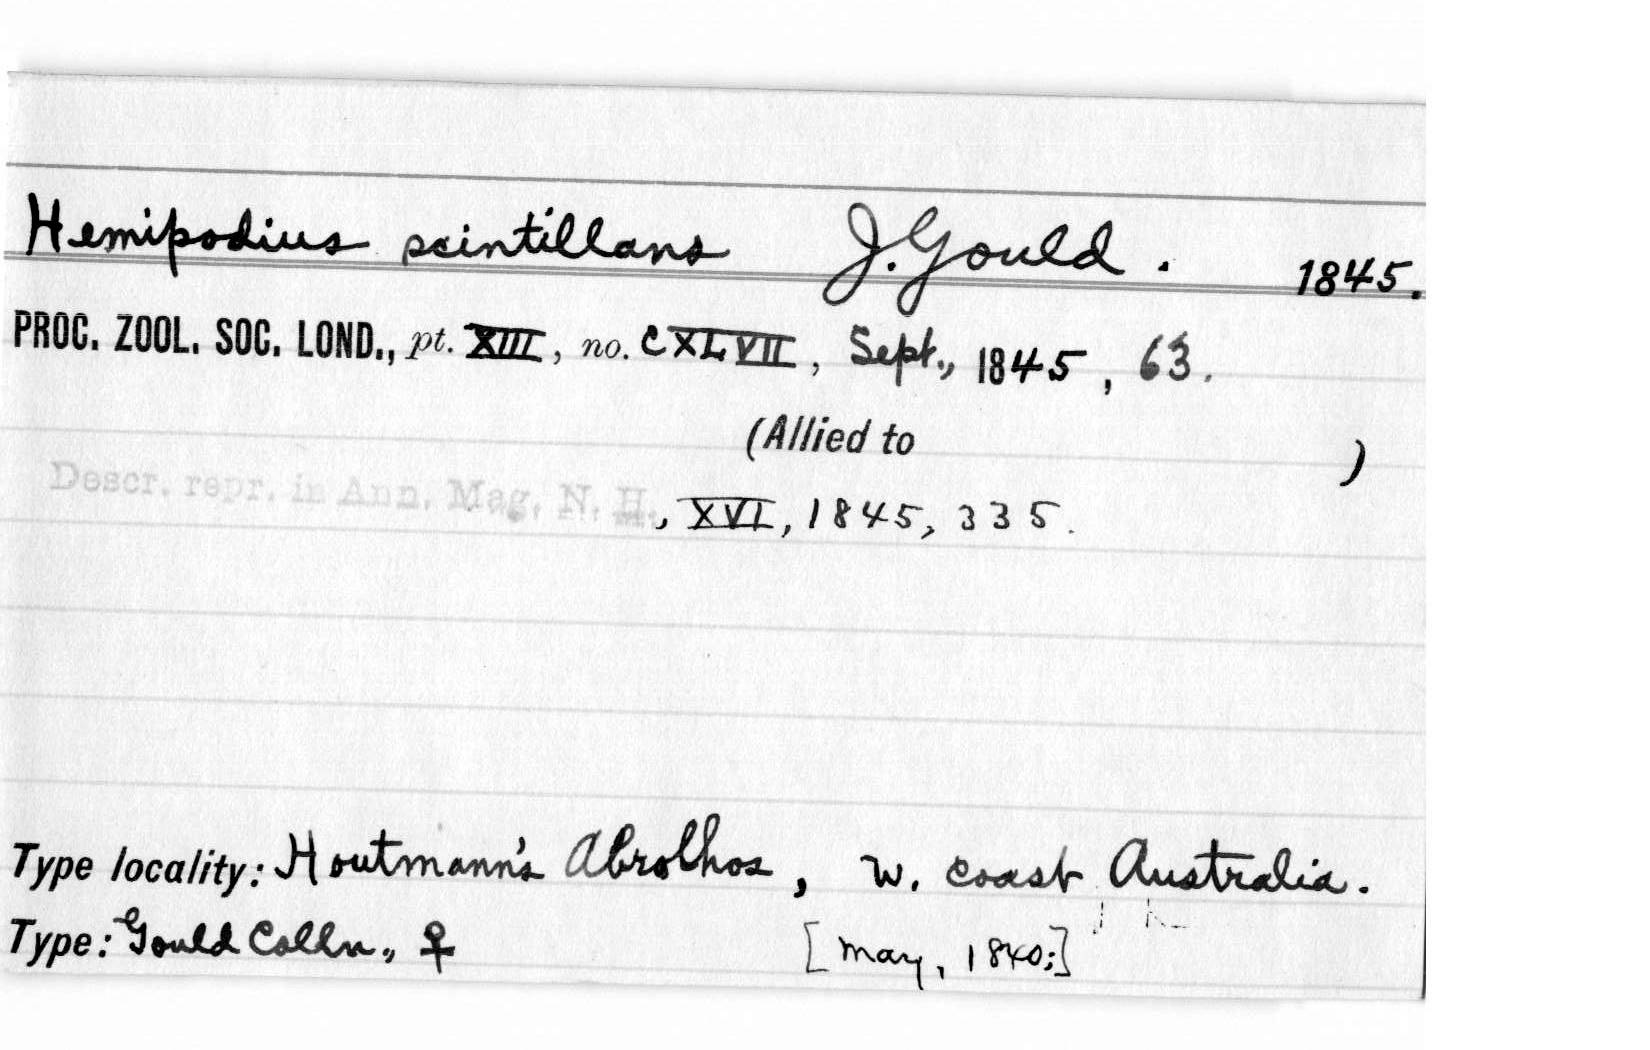 Hemipodius scintillans J. Gould. 1845.
PROC. ZOOL. SOC. LOND., pt. XIII, no. CXLVII, Sept., 1845, 63.
(Allied to )
Descr. repr. in Ann. Mag. N. H., XVI, 1845, 335.
Type locality: Houtmann's Abrolhos, W. coast Australia.
Type: Gould Colln., ♀ [May, 1840;]